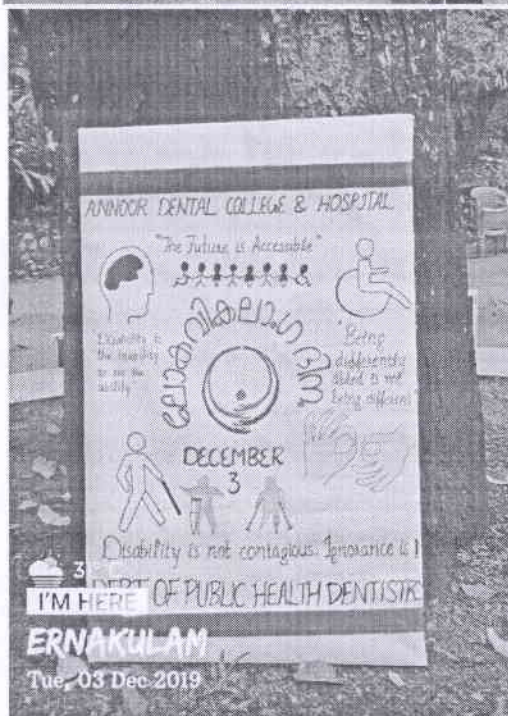 ANNOOR DENTAL COLLEGE & HOSPITAL
"The Future is Accessible"
"Disability is
the inability
to see the
ability"
ലോകവികലാംഗദിനം
"Being
differently
abled is not
being different"
DECEMBER
3
Disability is not contagious. Ignorance is !
DEPT OF PUBLIC HEALTH DENTISTR
I'M HERE
ERNAKULAM
Tue, 03 Dec 2019